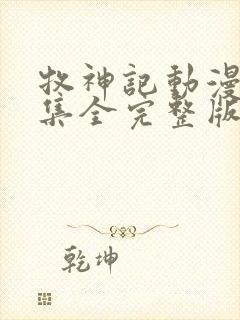 牧神記動漫
集全完整版
乾坤